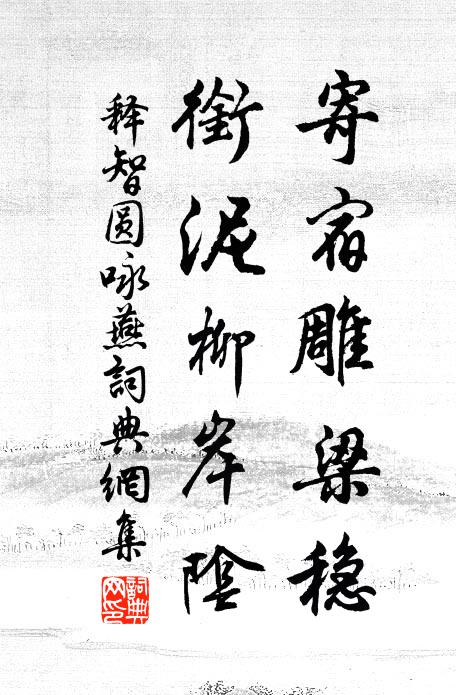 寄宿雕梁稳
衔泥柳岸阴
释智圆咏燕词典網集
詞典网印